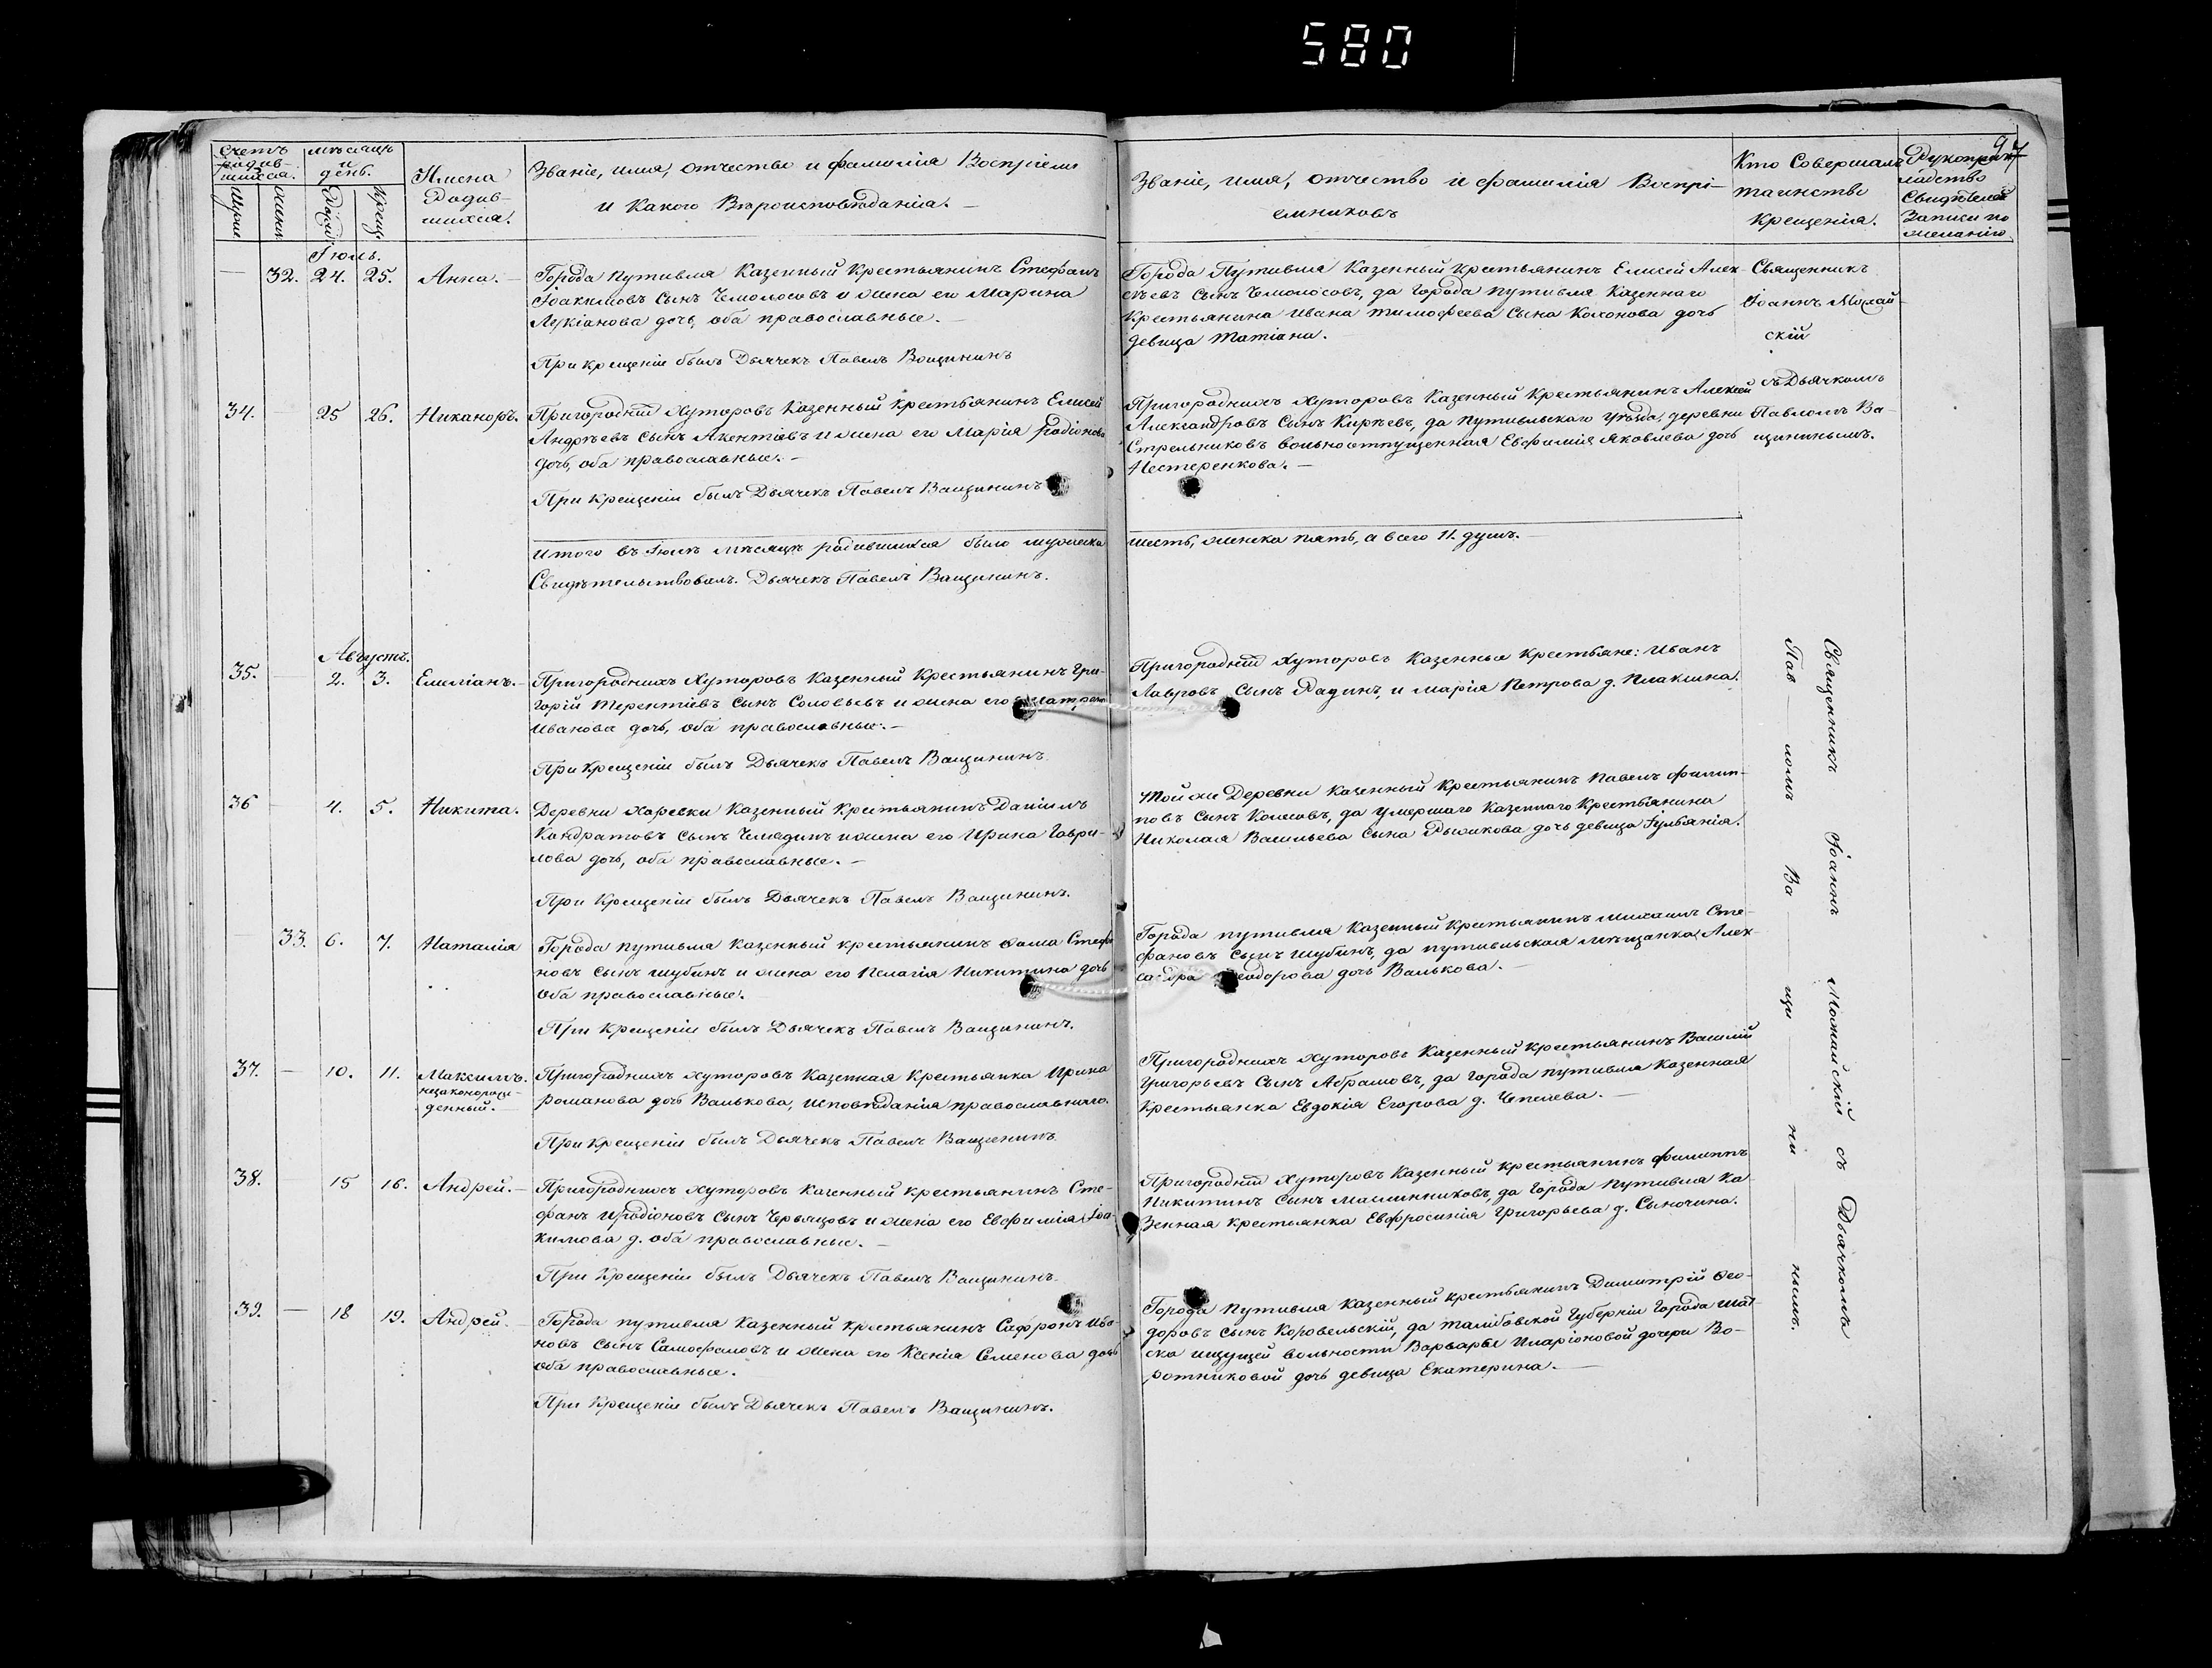 580
97
Счетъ родив-
шихся.
мѣсяцъ
и
день.
Имена
Родив-
шихся.
Званіе, имя, отчество и фамилія
и Какого Вѣроисповѣданія.
Званіе, имя, отчество и фамилія Воспрі-
емниковъ
Кто Совершалъ
таинство
Крещенія.
Свидѣтелей
Записи по
желанію.
Іюль.
32. 24. 25. Анна.
Города Путивля Казенный Крестьянинъ Стефанъ
Іоакимовъ Сынъ Чемолосовъ и жена его Марина
Лукіанова дочь, оба православные.
При крещеніи былъ Дьячекъ Павелъ Ващининъ
Города Путивля Казенный Крестьянинъ Елисей Алек-
сѣевъ Сынъ Чемолосовъ, да города Путивля Казеннаго
Крестьянина Ивана Тимофеева Сына дочь
девица Татіана.
Священникъ
Іоаннъ Можай-
скій
съ Дьячкомъ
Павломъ Ва-
щининымъ.
34. 25 26. Никаноръ.
Пригородныхъ Хуторовъ Казенный Крестьянинъ Елисей
Андрѣевъ Сынъ Акентіевъ и жена его Марія Родіонова
дочь, оба православные.
При Крещеніи былъ Дьячекъ Павелъ Ващининъ
Пригородныхъ Хуторовъ Казенный Крестьянинъ Алексей
Александровъ Сынъ Кирѣевъ, да Путивльского Уѣзда, деревни
Стрельниковъ вольноотпущенная Евфимія Яковлева дочь
Нестеренкова.
Итого въ Іюлѣ мѣсяцѣ родившихся было мужеска
шесть, женска пять, а всего 11. душъ.
Свидѣтельствовалъ. Дьячекъ Павелъ Ващининъ.
Августъ.
35. 2. 3. Емиліанъ.
Пригородныхъ Хуторовъ Казенный Крестьянинъ Гри-
горій Терентіевъ Сынъ Соловьевъ и жена его
Иванова дочь, оба православные.
При Крещеніи былъ Дьячекъ Павелъ Ващининъ
Пригородныхъ Хуторовъ Казенные Крестьяне: Иванъ
Лавровъ Сынъ Радинъ, и Марія Петрова д. Плаксина.
36 4. 5. Никита.
Деревни Харевки Казенный Крестьянинъ Даніилъ
Кондратовъ Сынъ и жена его Ирина Гаври-
лова дочь, оба православные.
При Крещеніи былъ Дьячекъ Павелъ Ващининъ.
Той же Деревни Казенный Крестьянинъ Павелъ Филип-
повъ Сынъ да умершаго Казеннаго Крестьянина
Николая Васильева Сына Рыжкова дочь девица Іульянія.
33. 6. 7. Наталія
Города Путивля Казенный крестьянинъ Ѳома Стефа
новъ Сынъ Шубинъ и жена его Пелагія Никитина дочь
оба православные.
При Крещеніи былъ Дьячекъ Павелъ Ващининъ.
Города Путивля Казенный Крестьянинъ Михаилъ Сте-
фановъ Сынъ Шубинъ, да Путивльская мѣщанка Алек-
сандра Ѳеодорова дочь Валькова.
37. 10. 11. Максимъ.
незаконорож-
денный.
Пригородныхъ хуторовъ Казенная Крестьянка Ирина
Романова дочь Валькова, исповѣданія православнаго.
При Крещеніи былъ Дьячекъ Павелъ Ващининъ
Пригородныхъ Хуторовъ Казенный Крестьянинъ Василій
Григорьевъ Сынъ Абрамовъ, да города Путивля Казенная
Крестьянка Евдокія Егорова д. Чепелева.
38. 15 16. Андрей.
Пригородныхъ хуторовъ Казенный крестьянинъ Сте-
фанъ Иродіоновъ Сынъ и жена его Евфимія Іоа-
кимова д. оба православные.
При Крещеніи былъ Дьячекъ Павелъ Ващининъ
Пригородныхъ Хуторовъ Казенный крестьянинъ Филиппъ
Никитинъ Сынъ Маслинниковъ, да Города Путивля Ка-
зенная Крестьянка Евфросинія Григорьева д. Сыночина.
39. 18 19. Андрей.
Города Путивля Казенный Крестьянинъ Сафронъ Ива-
новъ Сынъ Самофаловъ и жена его Ксенія Семенова дочь
оба православные.
При Крещеніи былъ Дьячекъ Павелъ Ващининъ.
Города Путивля Казенный крестьянинъ Димитрій Ѳео-
доровъ сынъ Коровельскій, да Тамбовской Губерніи города Шац-
ска ищущей вольности Варвары Иларіоновой дочери Во-
ротниковой дочь девица Екатерина.
Священникъ Іоаннъ Можайскій съ Дьячкомъ
Пав ломъ Ва щи ни нымъ.